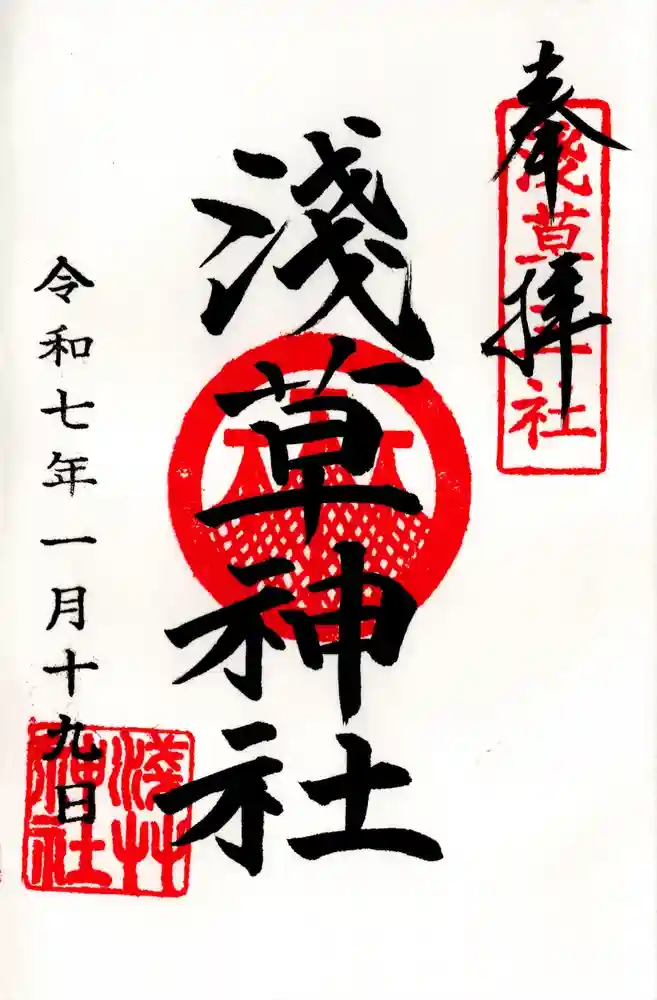 奉拝
淺草社
淺草神社
令和七年一月十九日
淺草
神社